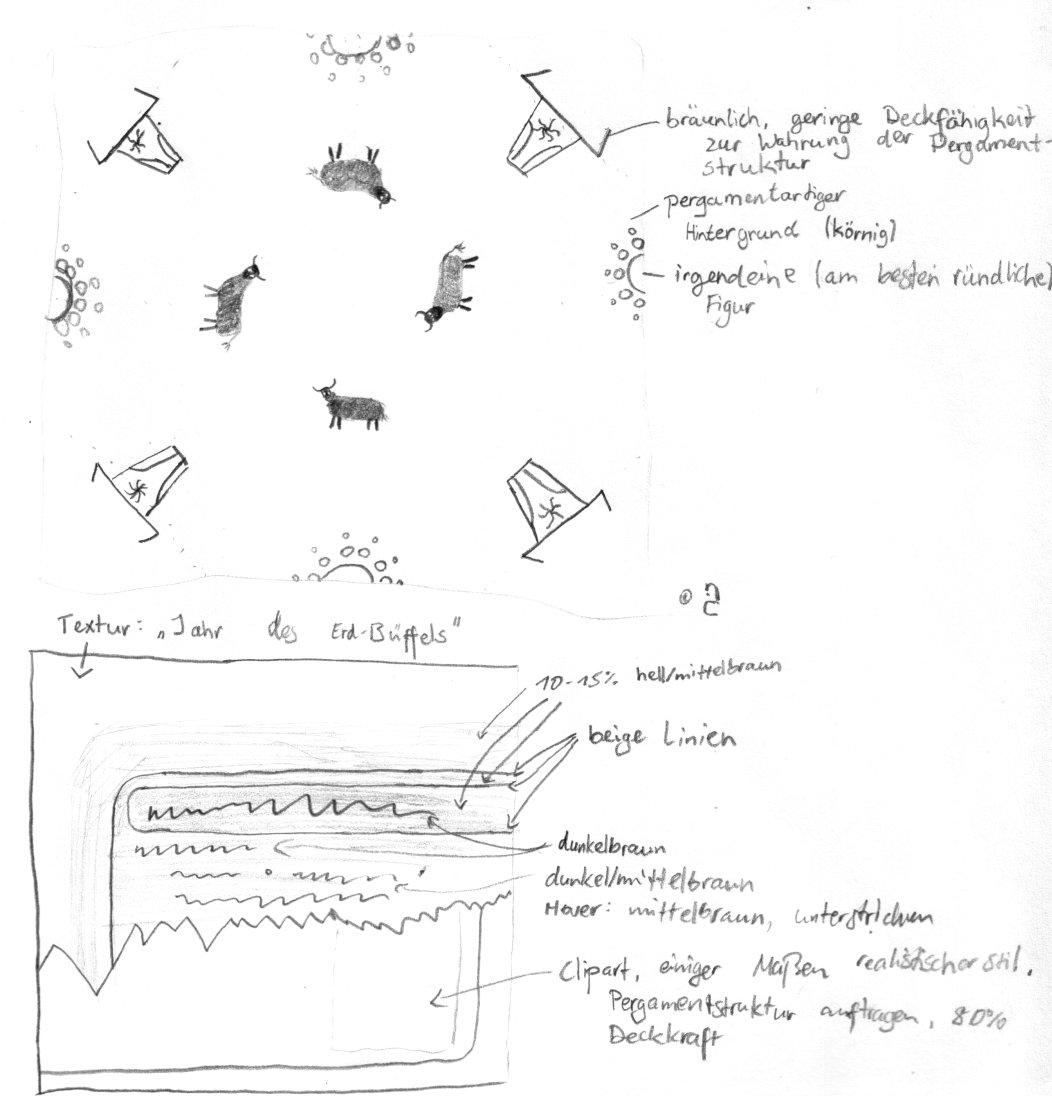 bräunlich, geringe Deckfähigkeit
zur Wahrung der Pergament-
struktur
pergamentartiger
Hintergrund (körnig)
irgendeine (am besten ründliche)
Figur
Textur: „Jahr des Erd-Büffels"
10-15% hell/mittelbraun
beige Linien
dunkelbraun
dunkel/mittelbraun
Hover: mittelbraun, unterstrichen
Clipart, einiger Maßen realistischer Stil.
Pergamentstruktur auftragen, 80%
Deckkraft